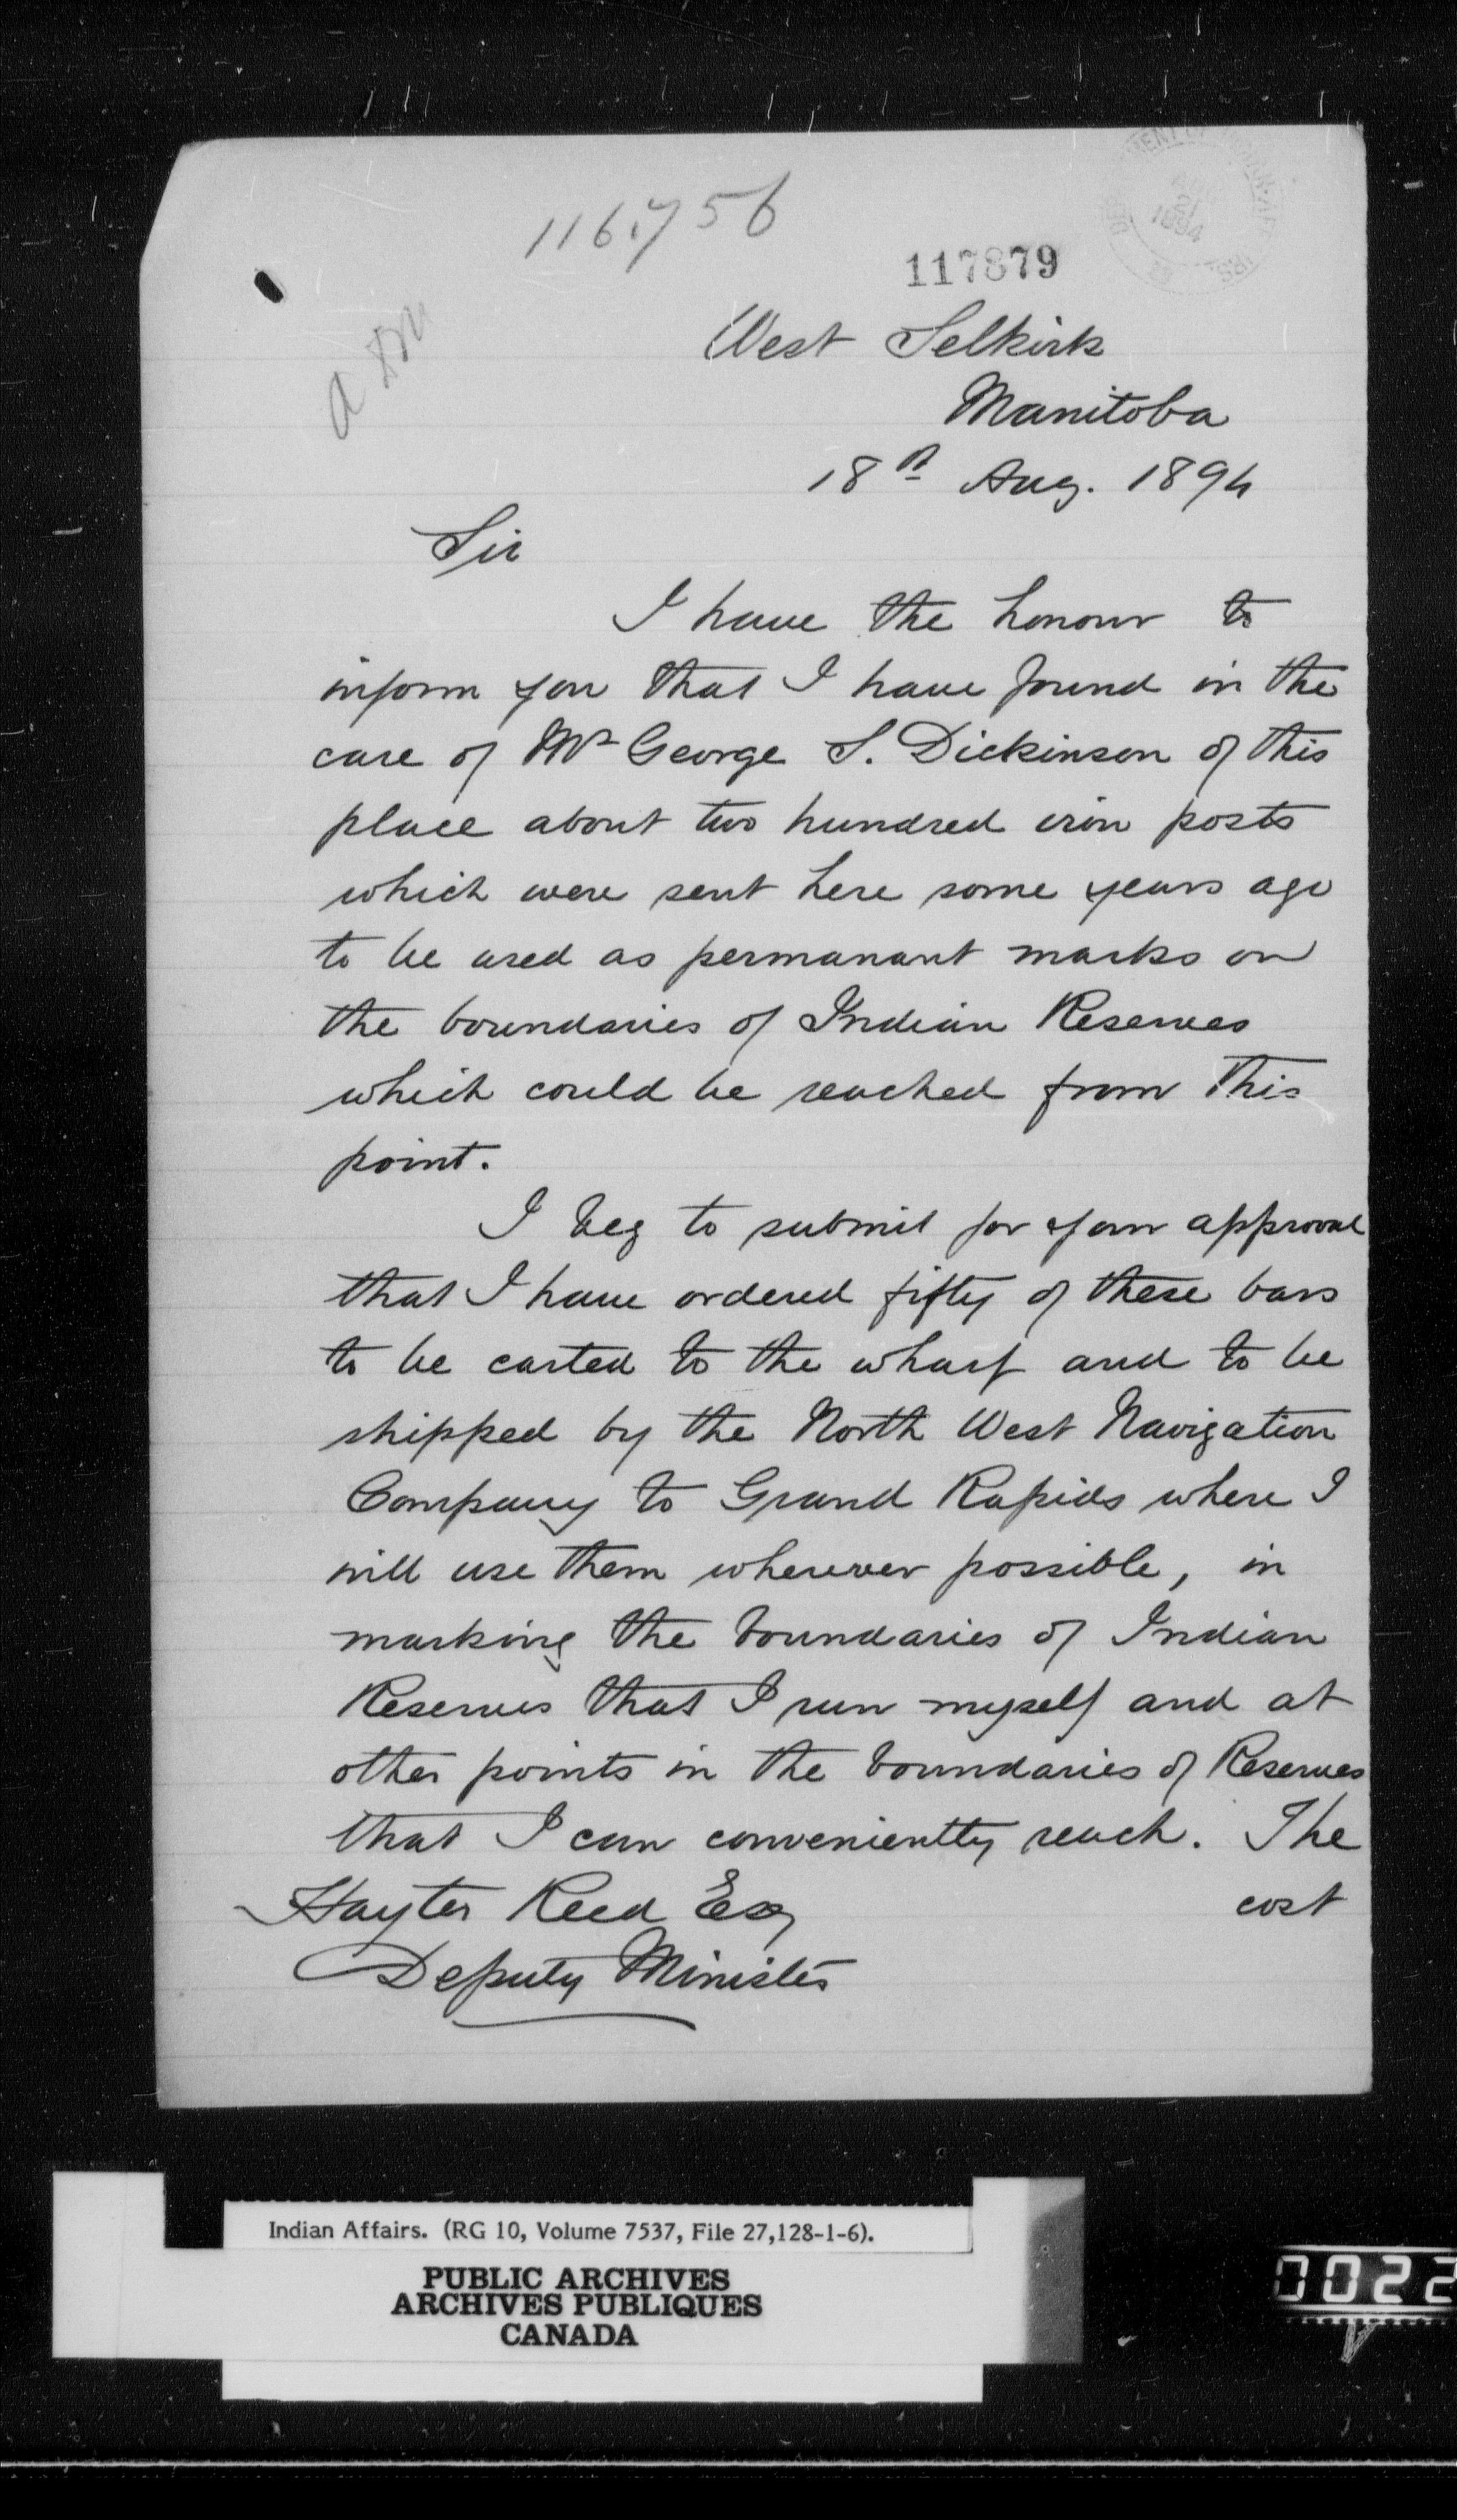 116,756
117879
1894
West Selkirk
Manitoba
18th Aug. 1894
Sir
I have the honour to
inform you that I have found in the
care of Mr George S. Dickinson of this
place about two hundred iron posts
which were sent here some years ago
to be used as permanant marks on
the boundaries of Indian Reserves
which could be reached from this
point.
I beg to submit for your approval
that I have ordered fifty of these bars
to be carted to the wharf and to be
shipped by the North West Navigation
Company to Grand Rapids where I
will use them wherever possible, in
marking the boundaries of Indian
Reserves that I run myself and at
other points in the boundaries of Reserves
that I can conveniently reach. The
cost
Hayter Reed Esq
Deputy Minister
Indian Affairs. (RG 10, Volume 7537, File 27,128-1-6).
PUBLIC ARCHIVES
ARCHIVES PUBLIQUES
CANADA
0022